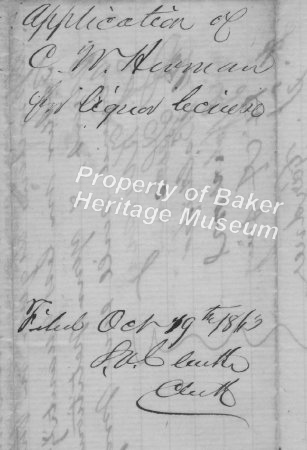 Application of
C. W. Herman
for liquor
Property of Baker
Heritage Museum
Filed Oct 19th 1863
Clerk